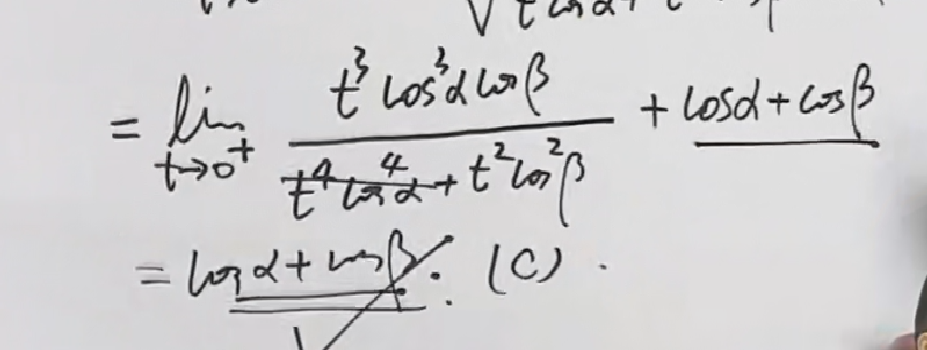 √ t cosα +
= lim t→0⁺ t³cos³αcosβ / t⁴cos⁴α + t²cos²β + cosα + cosβ
= cosα + cosβ. (C).